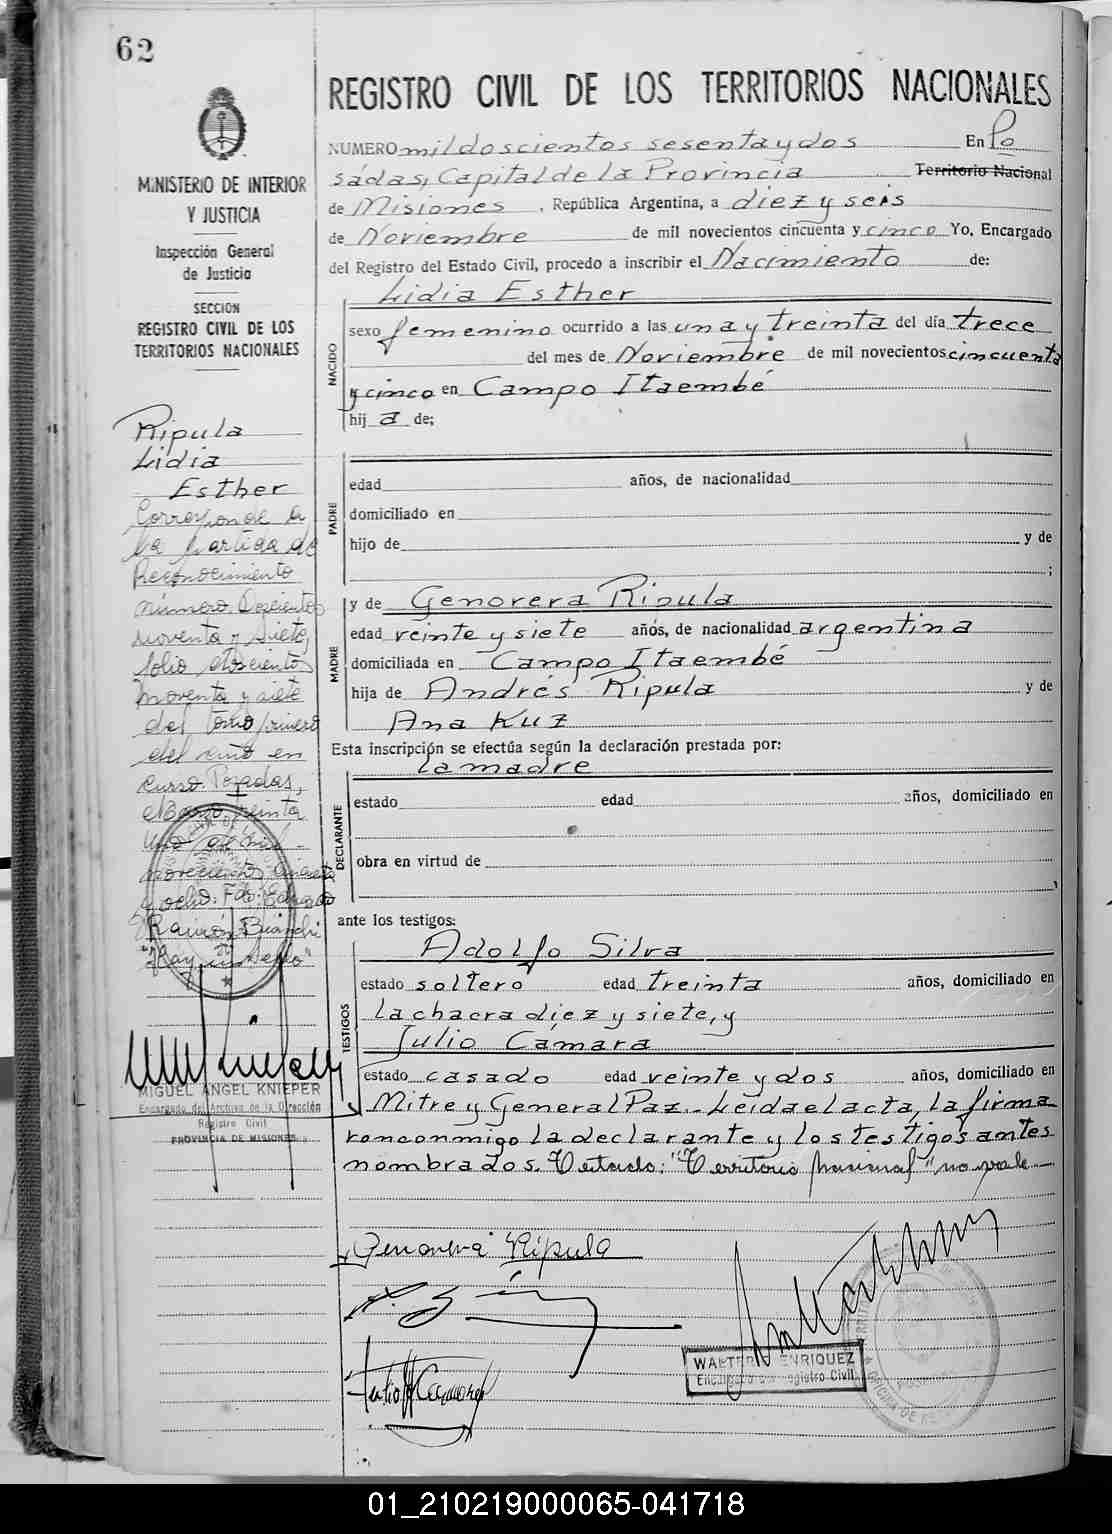 62
MINISTERIO DE INTERIOR
Y JUSTICIA
Inspección General
de Justicia
SECCION
REGISTRO CIVIL DE LOS
TERRITORIOS NACIONALES
Ripula
Lidia
Esther
Corresponde a
la partida de
Reconocimiento
número Doscientos
noventa y siete,
folio doscientos
noventa y siete
del tomo primero
del año en
curso. Posadas,
Marzo treinta
uno de mil
novecientos cincuenta
y ocho. Fdo: Eduardo
Ramón Bianchi
"Hay un sello"
MIGUEL ANGEL KNIEPER
Encargado del Archivo de la Dirección
Registro Civil
PROVINCIA DE MISIONES
REGISTRO CIVIL DE LOS TERRITORIOS NACIONALES
NUMERO mil doscientos sesenta y dos En Po
sadas, Capital de la Provincia Territorio Nacional
de Misiones, República Argentina, a diez y seis
de Noviembre de mil novecientos cincuenta y cinco Yo, Encargado
del Registro del Estado Civil, procedo a inscribir el Nacimiento de:
NACIDO
Lidia Esther
sexo femenino ocurrido a las una y treinta del día trece
del mes de Noviembre de mil novecientos cincuenta
y cinco en Campo Itaembé
hij a de;
PADRE
edad años, de nacionalidad
domiciliado en
hijo de y de
;
MADRE
y de Genovera Ripula
edad veinte y siete años, de nacionalidad argentina
domiciliada en Campo Itaembé
hija de Andrés Ripula y de
Ana Kuz
Esta inscripción se efectúa según la declaración prestada por:
DECLARANTE
la madre
estado edad años, domiciliado en
obra en virtud de
,
ante los testigos:
TESTIGOS
Adolfo Silva
estado soltero edad treinta años, domiciliado en
la chacra diez y siete, y
Julio Camara
estado casado edad veinte y dos años, domiciliado en
Mitre y General Paz.- Leida el acta, la firma
ron conmigo la declarante y los testigos antes
nombrados. Testado: "Territorio Nacional" no vale
Genoveva Ripula
Julio Camara
WALTER ENRIQUEZ
Encargado del Registro Civil
01_210219000065-041718